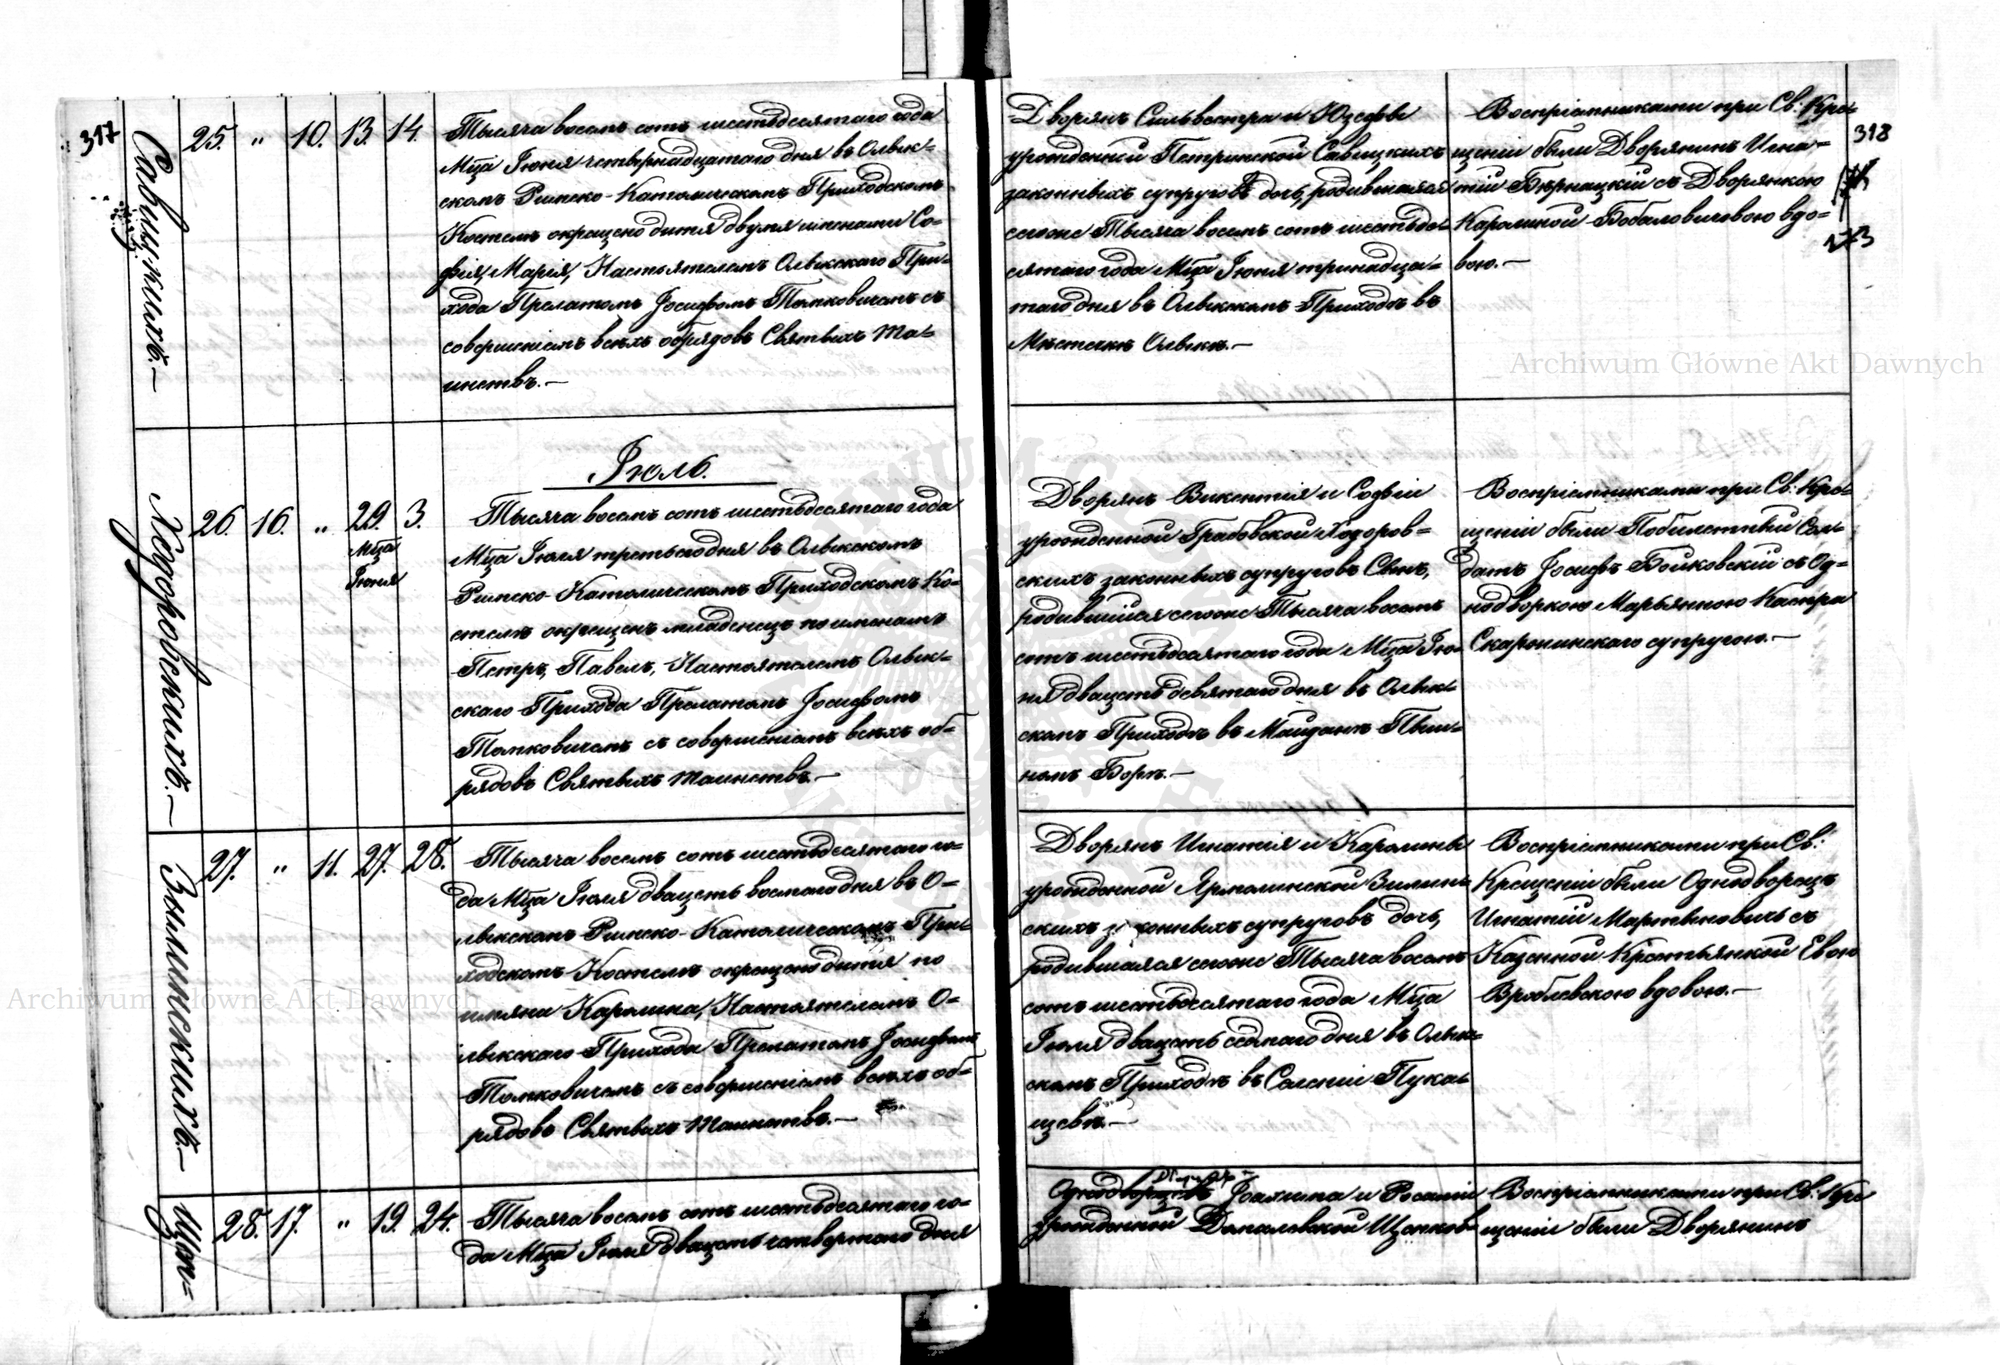 317
Савицкихъ.—
25. " 10. 13. 14.
Тысяча восемь сотъ шестьдесятаго года
Мца Іюня четырнадцатаго дня въ Олык-
скомъ Римско-Католическомъ Приходскомъ
Костелѣ окрещено дитя двумя именами Со-
фія, Марія, Настоятелемъ Олыкскаго При-
хода Прелатомъ Іосифомъ Томковичемъ съ
совершеніемъ всѣхъ обрядовъ Святыхъ Та-
инствъ.—
Дворянъ Сильвестра и Юзефы
урожденной Петринской Савицкихъ
законныхъ супруговъ дочь, родившаяся
сегоже Тысяча восемь сотъ шестьде-
сятаго года Мца Іюня тринадца-
таго дня въ Олыкскомъ Приходѣ въ
Мѣстечкѣ Олыкѣ.—
Воспріемниками при Св: Кре-
щеніи были Дворянинъ Игна-
тій Бернацкій съ Дворянкою
Каролиной Бобаловичовою вдо-
вою.—
318
Archiwum Główne Akt Dawnych
Іюль.
Ходоровскихъ.—
26. 16. " 29. 3.
Мца
Іюня
Тысяча восемь сотъ шестьдесятаго года
Мца Іюля третьяго дня въ Олыкскомъ
Римско-Католическомъ Приходскомъ Ко-
стелѣ окрещенъ младенецъ по именамъ
Петръ, Павелъ, Настоятелемъ Олык-
скаго Прихода Прелатомъ Іосифомъ
Томковичемъ съ совершеніемъ всѣхъ об-
рядовъ Святыхъ Таинствъ.—
Дворянъ Викентія и Софіи
урожденной Грабовской Ходоров-
скихъ законныхъ супруговъ Сынъ,
родившійся сегоже Тысяча восемь
сотъ шестьдесятаго года Мца Ію-
ня двацеть девятаго дня въ Олык-
скомъ Приходѣ въ Майданѣ Пыш-
номъ Борѣ.—
Воспріемниками при Св: Кре-
щеніи были Побилетный Сол-
датъ Іосифъ Бойковскій съ Од-
нодворкою Марьянною Каспра
Скаржинскаго супругою.—
Зилинскихъ.—
27. " 11. 27. 28.
Тысяча восемь сотъ шестьдесятаго го-
да Мца Іюля двацеть восмаго дня въ О-
лыкскомъ Римско-Католическомъ При-
ходскомъ Костелѣ окрещено дитя по
имяни Каролина, Настоятелемъ О-
лыкскаго Прихода Прелатомъ Іосифомъ
Томковичемъ съ совершеніемъ всѣхъ об-
рядовъ Святыхъ Таинствъ.—
Дворянъ Игнатія и Каролины
урожденной Ярмолинской Зилин-
скихъ законныхъ супруговъ дочь,
родившаяся сегоже Тысяча восемь
сотъ шестьдесятаго года Мца
Іюля двацеть седмаго дня въ Олык-
скомъ Приходѣ въ Селеніи Пука-
щевѣ.—
Воспріемниками при Св:
Крещеніи были Однодворецъ
Игнатій Мартыновичъ съ
Казенной Крестьянкой Евою
Врублевскою вдовою.—
Archiwum Główne Akt Dawnych
Щеп-
28. 17. " 19. 24.
Тысяча восемь сотъ шестьдесятаго го-
да Мца Іюля двацеть четвертаго дня
Іоахима и Розаліи
урожденной Щепков-
Воспріемниками при Св: Кре-
щеніи были Дворянинъ